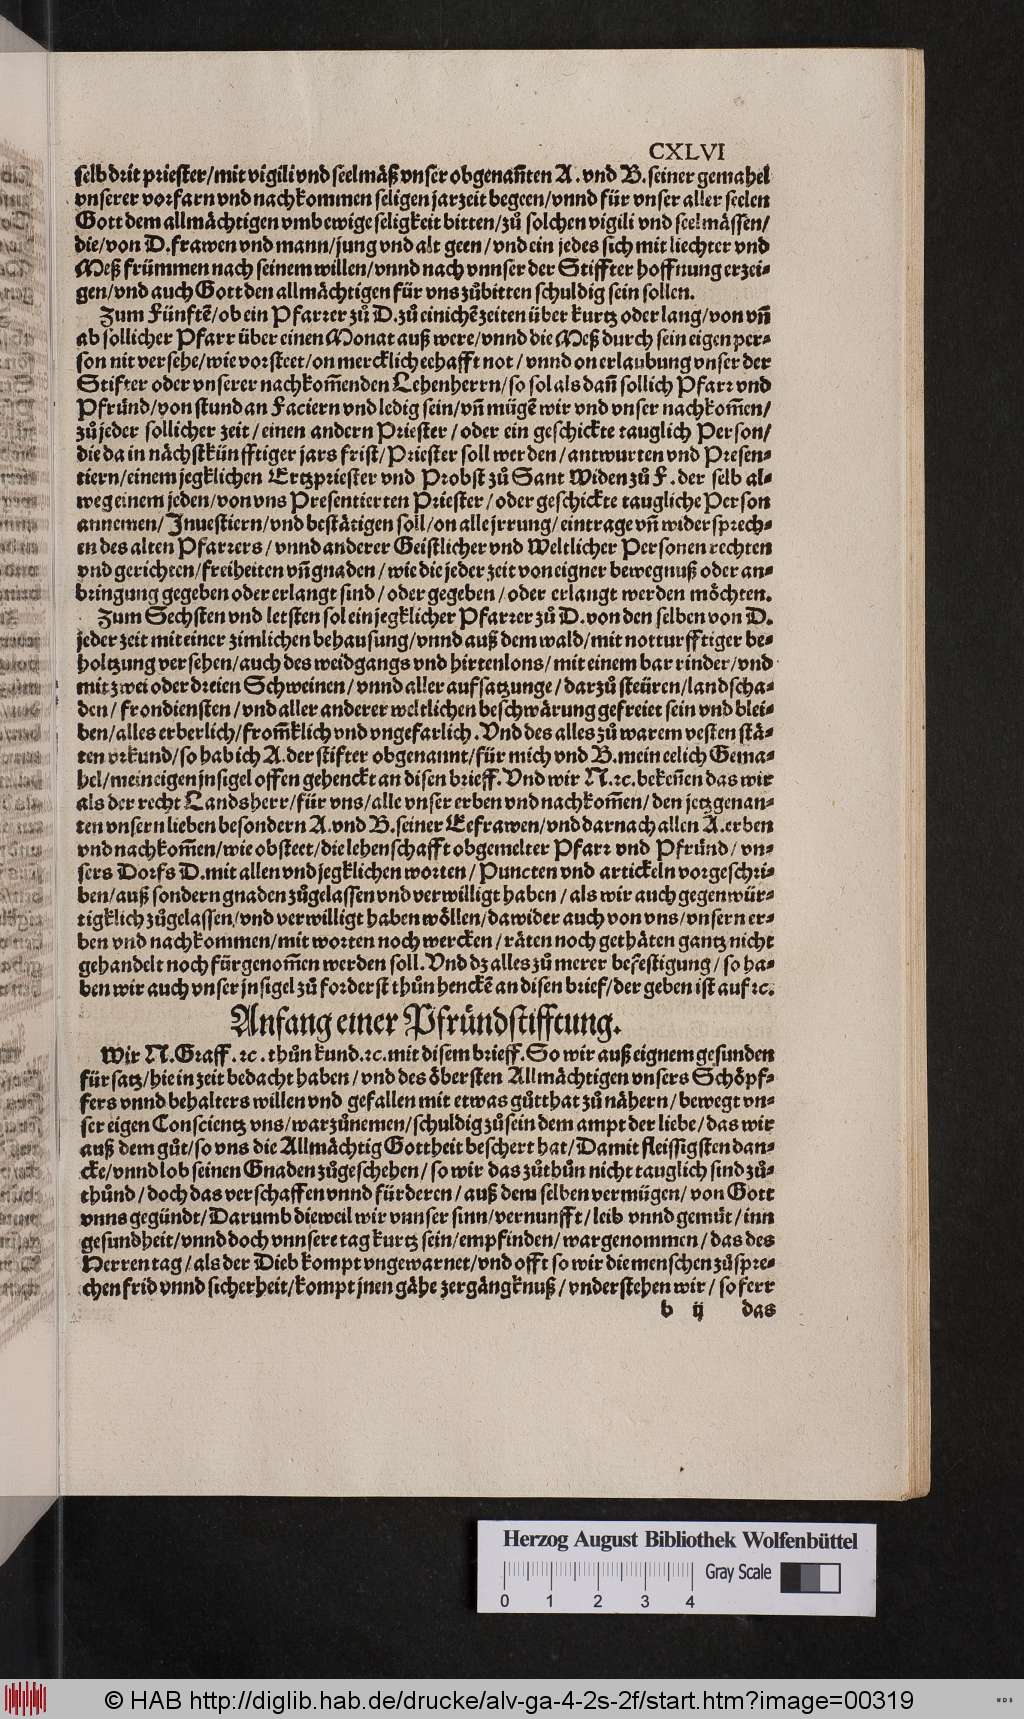 CXLVI
selb drit priester/mit vigili vnd seelmäß vnser obgenañten A. vnd B. seiner gemahel
vnserer vorfarn vnd nachkommen seligen jarzeit begeen/vnnd für vnser aller seelen
Gott dem allmächtigen vmb ewige seligkeit bitten/zů solchen vigili vnd seelmässen/
die/von D. frawen vnd mann/jung vnd alt geen/vnd ein jedes sich mit liechter vnd
Meß frümmen nach seinem willen/vnnd nach vnnser der Stiffter hoffnung erzei-
gen/vnd auch Gott den allmächtigen für vns zůbitten schuldig sein sollen.
Zum Fünftẽ/ob ein Pfarrer zů D. zů einichẽ zeiten über kurtz oder lang/von vñ
ab sollicher Pfarr über einen Monat auß were/vnnd die Meß durch sein eigen per-
son nit versehe/wie vorsteet/on mercklich eehafft not/vnnd on erlaubung vnser der
Stifter oder vnserer nachkom̃enden Lehenherrn/so sol als dañ sollich Pfarr vnd
Pfründ/von stund an Faciern vnd ledig sein/vñ mügẽ wir vnd vnser nachkom̃en/
zů jeder sollicher zeit/einen andern Priester/oder ein geschickte tauglich Person/
die da in nächstkünfftiger jars frist/Priester soll werden/antwurten vnd Presen-
tiern/einem jegklichen Ertzpriester vnd Probst zů Sant Widen zů F. der selb al-
weg einem jeden/von vns Presentierten Priester/oder geschickte taugliche Person
annemen/Inuestiern/vnd bestätigen soll/on alle jrrung/eintrage vñ widersprech-
en des alten Pfarrers/vnnd anderer Geistlicher vnd Weltlicher Personen rechten
vnd gerichten/freiheiten vñ gnaden/wie die jeder zeit von eigner bewegnuß oder an-
bringung gegeben oder erlangt sind/oder gegeben/oder erlangt werden möchten.
Zum Sechsten vnd letsten sol ein jegklicher Pfarrer zů D. von den selben von D.
jeder zeit mit einer zimlichen behausung/vnnd auß dem wald/mit notturfftiger be-
holtzung versehen/auch des weidgangs vnd hirtenlons/mit einem bar rinder/vnd
mit zwei oder dreien Schweinen/vnnd aller aufsatzunge/darzů steüren/landscha-
den/frondiensten/vnd aller anderer weltlichen beschwärung gefreiet sein vnd blei-
ben/alles erberlich/from̃klich vnd vngefarlich. Vnd des alles zů warem vesten stä-
ten vrkund/so hab ich A. der stifter obgenannt/für mich vnd B. mein eelich Gema-
hel/mein eigen jnsigel offen gehenckt an disen brieff. Vnd wir N. ꝛc. bekeñen das wir
als der recht Landsherr/für vns/alle vnser erben vnd nachkom̃en/den jetzgenan-
ten vnsern lieben besondern A. vnd B. seiner Eefrawen/vnd darnach allen A. erben
vnd nachkom̃en/wie obsteet/die lehenschafft obgemelter Pfarr vnd Pfründ/vn-
sers Dorfs D. mit allen vnd jegklichen worten/Puncten vnd artickeln vorgeschri-
ben/auß sondern gnaden zůgelassen vnd verwilligt haben/als wir auch gegenwür-
tigklich zůgelassen/vnd verwilligt haben wöllen/dawider auch von vns/vnsern er-
ben vnd nachkommen/mit worten noch wercken/räten noch gethäten gantz nicht
gehandelt noch fürgenom̃en werden soll. Vnd dz alles zů merer befestigung/so ha-
ben wir auch vnser jnsigel zů forderst thůn henckẽ an disen brief/der geben ist auf ꝛc.
Anfang einer Pfründstifftung.
Wir N. Graff. ꝛc. thůn kund. ꝛc. mit disem brieff. So wir auß eignem gesunden
fürsatz/hie in zeit bedacht haben/vnd des öbersten Allmächtigen vnsers Schöpf-
fers vnnd behalters willen vnd gefallen mit etwas gůtthat zů nähern/bewegt vn-
ser eigen Conscientz vns/warzůnemen/schuldig zůsein dem ampt der liebe/das wir
auß dem gůt/so vns die Allmächtig Gottheit beschert hat/Damit fleissigsten dan-
cke/vnnd lob seinen Gnaden zůgeschehen/so wir das zůthůn nicht tauglich sind zů-
thůnd/doch das verschaffen vnnd fürderen/auß dem selben vermügen/von Gott
vnns gegündt/Darumb dieweil wir vnnser sinn/vernunfft/leib vnnd gemüt/inn
gesundheit/vnnd doch vnnsere tag kurtz sein/empfinden/wargenommen/das des
Herren tag/als der Dieb kompt vngewarnet/vnd offt so wir die menschen zůspre-
chen frid vnnd sicherheit/kompt jnen gähe zergängknuß/vnderstehen wir/so ferr
b ij das
Herzog August Bibliothek Wolfenbüttel
Gray Scale
0 1 2 3 4
© HAB http://diglib.hab.de/drucke/alv-ga-4-2s-2f/start.htm?image=00319